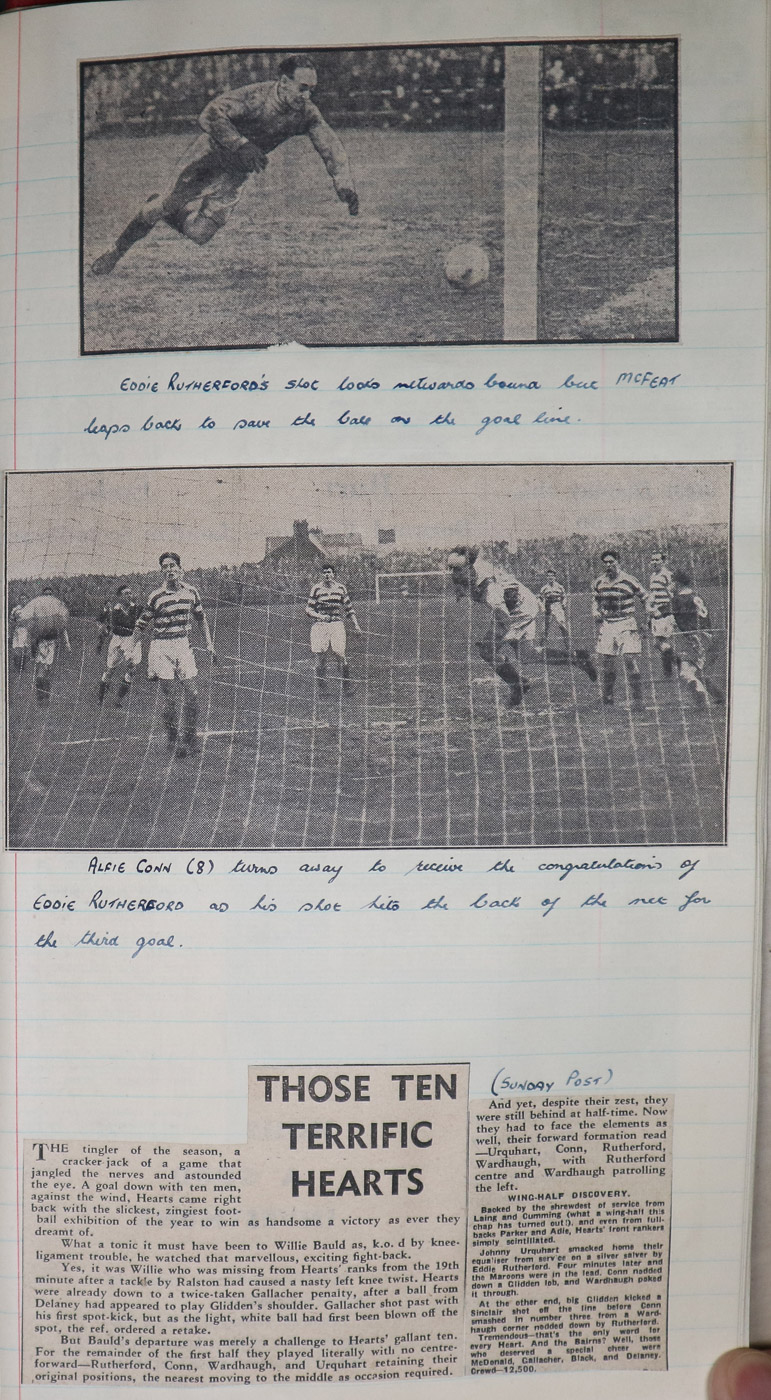 EDDIE RUTHERFORD'S shot looks netwards bound but MCFEAT
leaps back to save the ball on the goal line.
ALFIE CONN (8) turns away to receive the congratulations of
EDDIE RUTHERFORD as his shot hits the back of the net for
the third goal.
THOSE TEN
TERRIFIC
HEARTS
THE tingler of the season, a
cracker-jack of a game that
jangled the nerves and astounded
the eye. A goal down with ten men,
against the wind, Hearts came right
back with the slickest, zingiest foot-
ball exhibition of the year to win as handsome a victory as ever they
dreamt of.
What a tonic it must have been to Willie Bauld as, k.o.d by knee-
ligament trouble, he watched that marvellous, exciting fight-back.
Yes, it was Willie who was missing from Hearts' ranks from the 19th
minute after a tackle by Ralston had caused a nasty left knee twist. Hearts
were already down to a twice-taken Gallacher penalty, after a ball from
Delaney had appeared to play Glidden's shoulder. Gallacher shot past with
his first spot-kick, but as the light, white ball had first been blown off the
spot, the ref. ordered a retake.
But Bauld's departure was merely a challenge to Hearts' gallant ten.
For the remainder of the first half they played literally with no centre-
forward—Rutherford, Conn, Wardhaugh, and Urquhart retaining their
original positions, the nearest moving to the middle as occasion required.
(SUNDAY POST)
And yet, despite their zest, they
were still behind at half-time. Now
they had to face the elements as
well, their forward formation read
—Urquhart, Conn, Rutherford,
Wardhaugh, with Rutherford
centre and Wardhaugh patrolling
the left.
WING-HALF DISCOVERY.
Backed by the shrewdest of service from
Laing and Cumming (what a wing-half this
chap has turned out!), and even from full-
backs Parker and Adie, Hearts' front rankers
simply scintillated.
Johnny Urquhart smacked home their
equaliser from service on a silver salver by
Eddie Rutherford. Four minutes later and
the Maroons were in the lead. Conn nodded
down a Glidden lob, and Wardhaugh poked
it through.
At the other end, big Glidden kicked a
Sinclair shot off the line before Conn
smashed in number three from a Ward-
haugh corner nodded down by Rutherford.
Tremendous—that's the only word for
every Heart. And the Bairns? Well, those
who deserved a special cheer were
McDonald, Gallacher, Black, and Delaney.
Crowd—12,500.